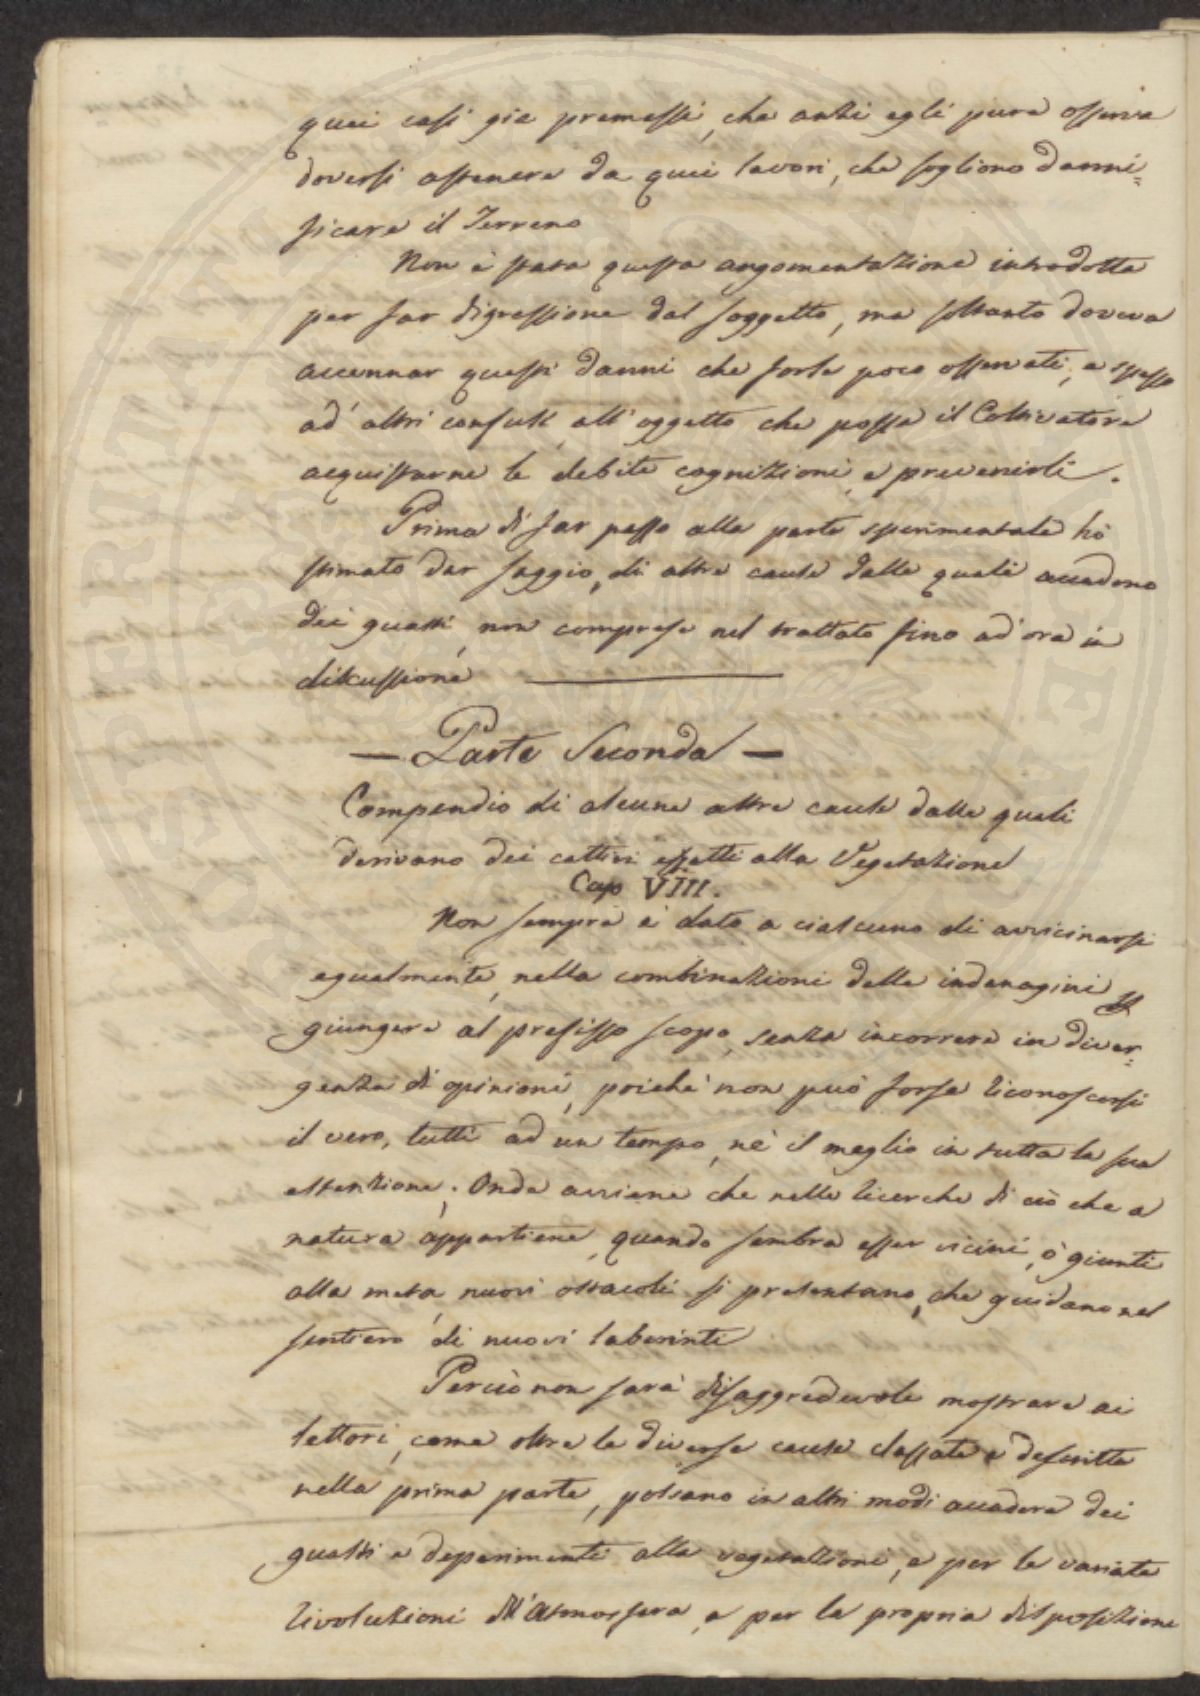 quei casi già premessi, che anzi egli pure osserva
doversi astenere da quei lavori, che sogliono danni=
ficare il Terreno
Non è stata questa argomentazione introdotta
per far digressione dal soggetto, ma soltanto doveva
accennar questi danni che forse poco osservati, e spesso
ad' altri confusi, all' oggetto che possa il Coltivatore
acquistarne le debite cognizioni, e prevenirli.
Prima di far passo alla parte sperimentale hò
stimato dar saggio, di altre cause dalle quali accadono
dei guasti, non comprese nel trattato fino ad' ora in
discussione
— Parte Seconda —
Compendio di alcune altre cause dalle quali
derivano dei cattivi effetti alla Vegetazione
Cap VIII.
Non sempre è dato a ciascuno di avvicinarsi
egualmente, nella combinazioni delle indenagini
giungere al prefisso scopo, senza incorrere in diver=
genza di opinioni, poichè non può forse riconoscersi
il vero, tutti ad un tempo, nè il meglio in tutta la sua
estenzione; Onde avviene che nelle ricerche di ciò che a
natura appartiene, quando sembra esser vicini, ò giunti
alla meta, nuovi ostacoli si presentano, che guidano nel
sentiero di nuovi laberinti
Perciò non sarà disaggredevole mostrare ai
lettori, come oltre le diverse cause classate e descritte
nella prima parte, possano in altri modi accadere dei
guasti e deperimenti alla vegetazioni, e per le variate
rivoluzioni dll' Atmosfera, e per la propria disposizione